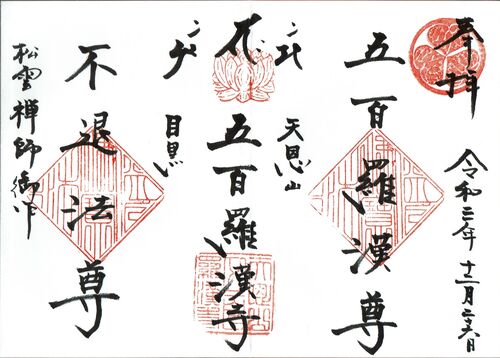 奉拝
令和三年十二月二十六日
五百羅漢尊
天恩山
五百羅漢寺
目黒
不退法尊
松雲禅師御作